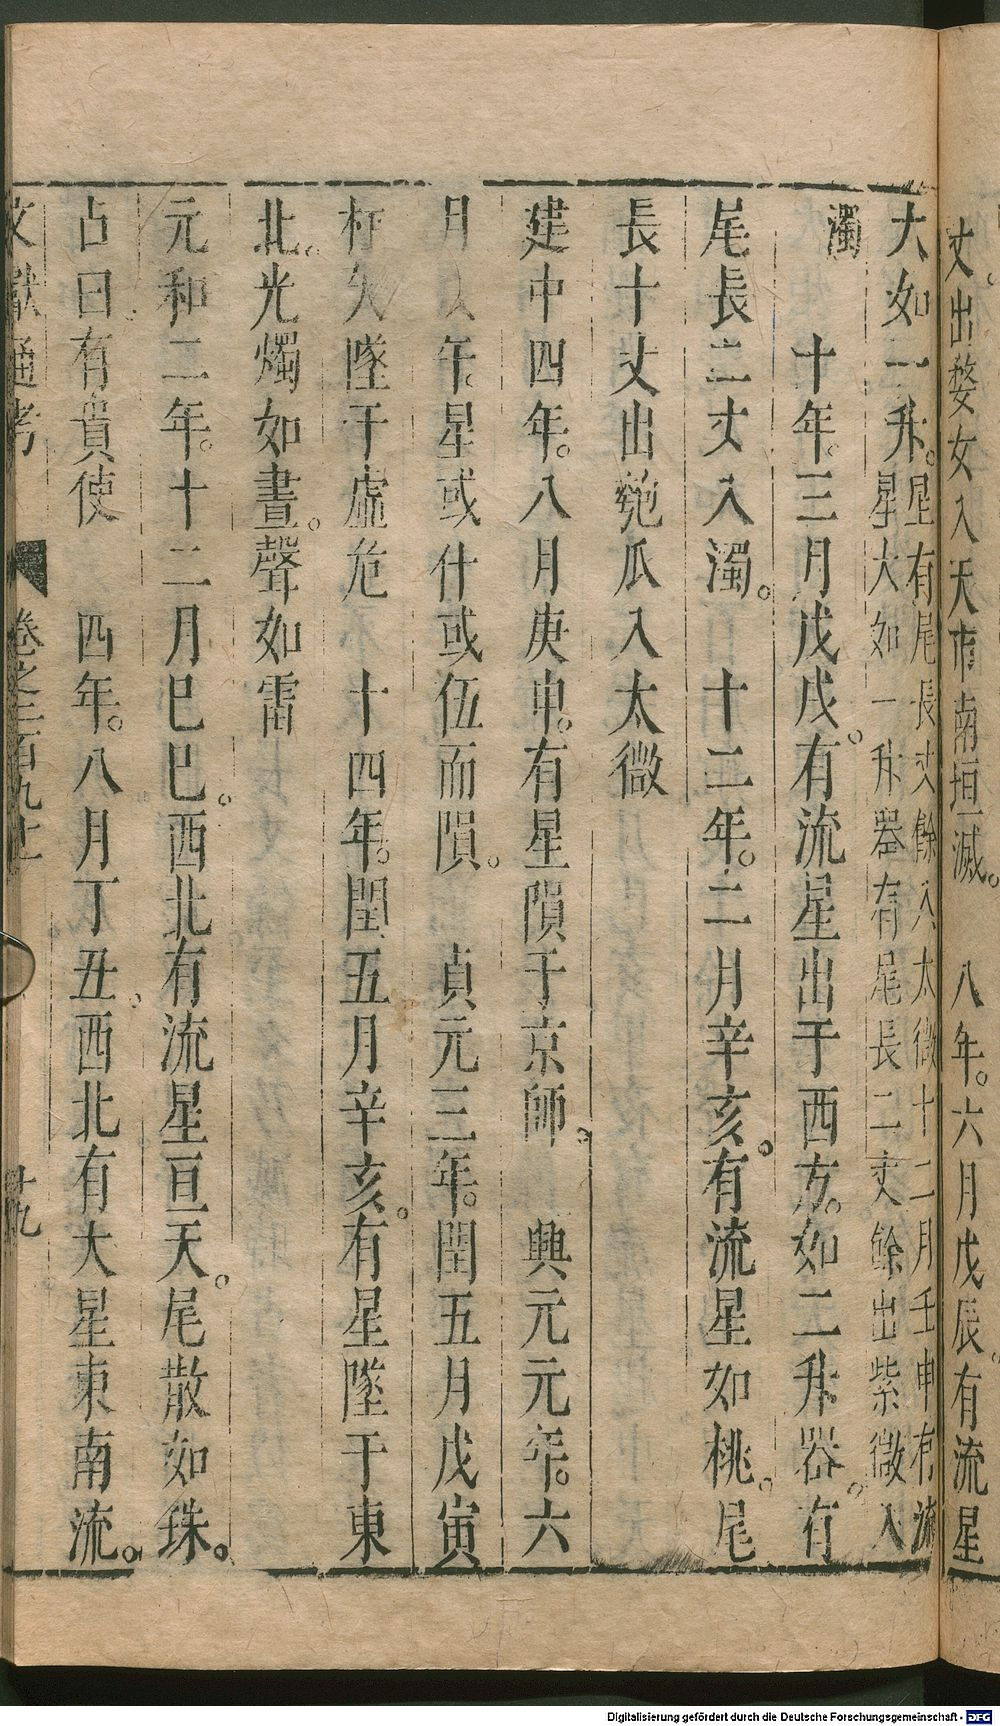 丈出婺女入天市南垣滅。　八年。六月戊辰。有流星
大如一升。星有尾長丈餘入太微十二月壬申有流
星大如一升器有尾長二丈餘出紫微入
濁　十年。三月戊戌。有流星出于西方。如二升器。有
尾長二丈入濁。　十二年。二月辛亥。有流星如桃。尾
長十丈出匏瓜入太微
建中四年。八月庚申。有星隕于京師。　興元元年。六
月戊午。星或什或伍而隕。　貞元三年。閏五月戊寅
枉矢墜于虛危　十四年。閏五月辛亥。有星墜于東
北。光燭如晝。聲如雷
元和二年。十二月巳巳。西北有流星亘天。尾散如珠。
占曰。有貴使　四年。八月丁丑。西北有大星東南流。
文獻通考　卷之二百九十　十九
Digitalisierung gefördert durch die Deutsche Forschungsgemeinschaft - DFG